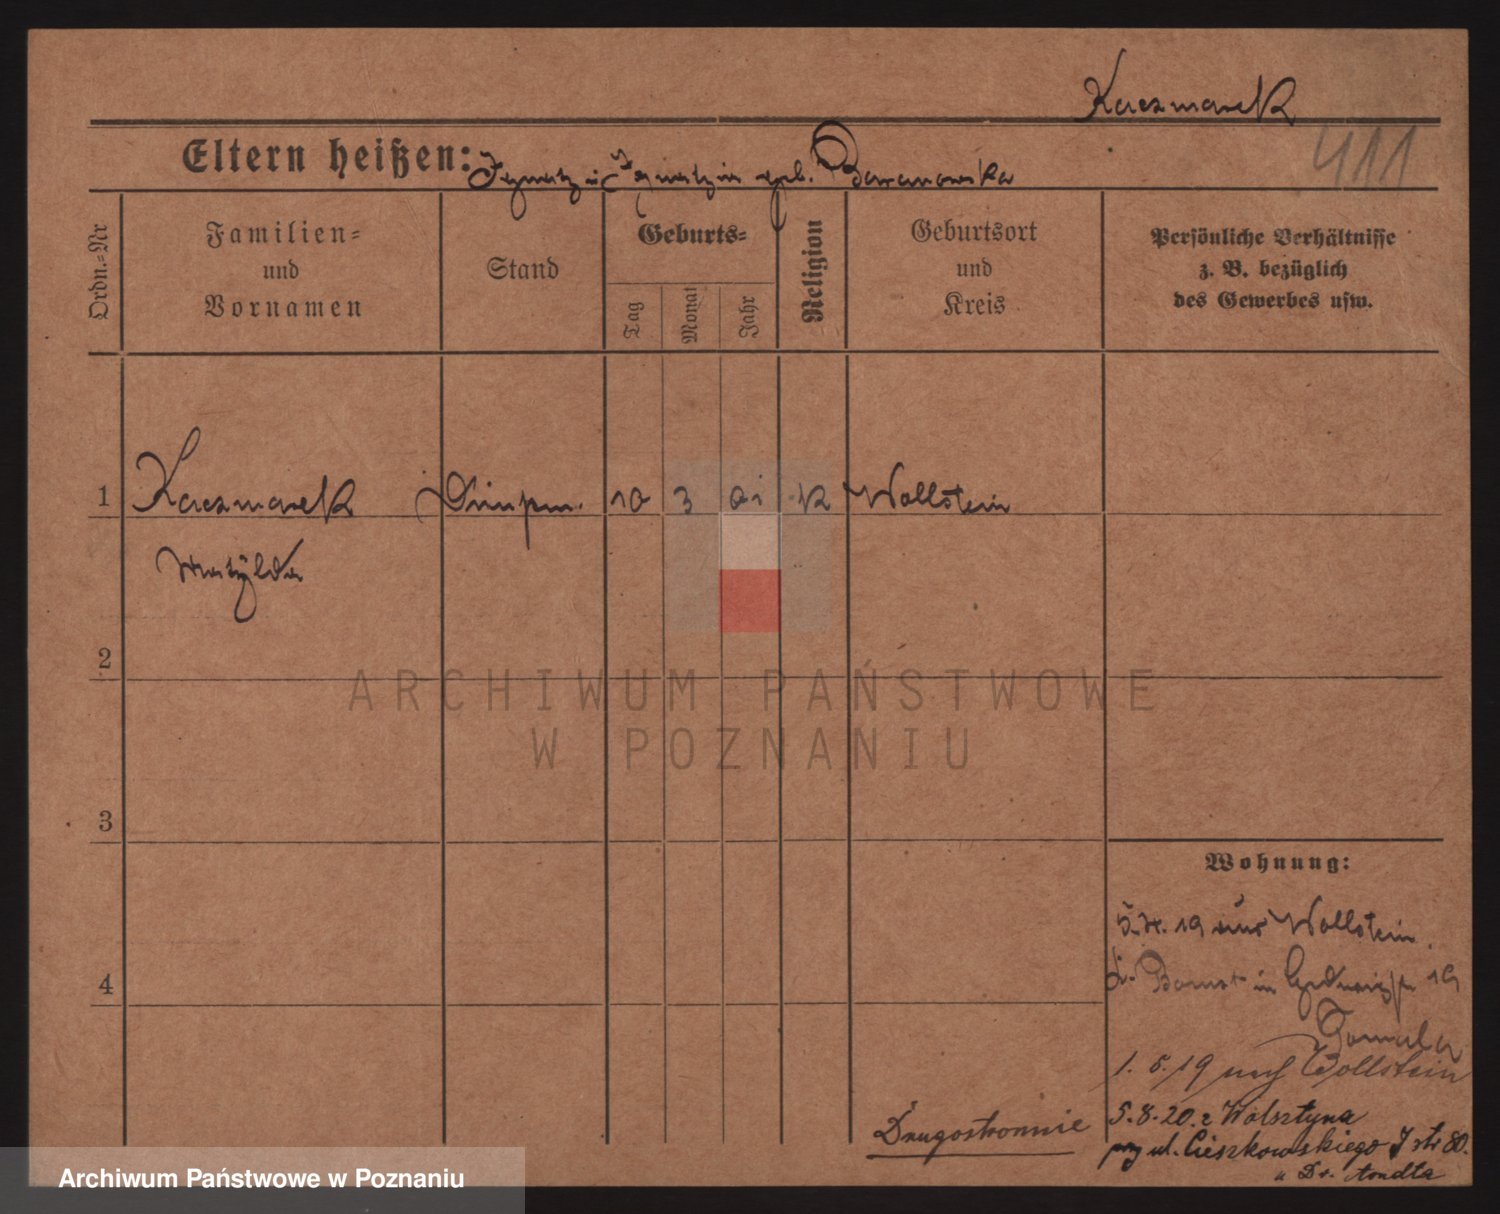 Kaczmarek
411
Eltern heißen: Ignatz u Ignatzia geb. Baranowska
Ordn.=Nr
Familien=
und
Vornamen
Stand
Geburts=
Tag
Monat
Jahr
Religion
Geburtsort
und
Kreis
Persönliche Verhältnisse
z. B. bezüglich
des Gewerbes usw.
1 Kaczmarek 10 3 01 k Wollstein
Matylda
2
ARCHIWUM PAŃSTWOWE
W POZNANIU
3
4
Wohnung:
19 aus Wollstein.
19
1. 5. 19 nach Wollstein
5.8.20. z Wolsztyna
Drugostronnie
przy ul. Cieszkowskiego 80.
u Dr. Arndta
Archiwum Państwowe w Poznaniu